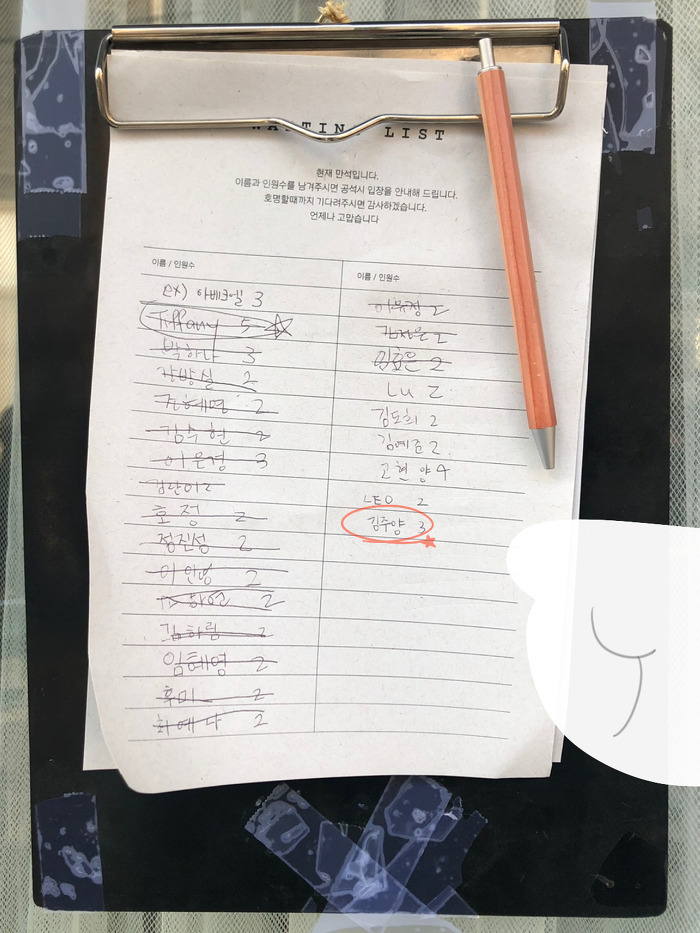 WAITING LIST
현재 만석입니다.
이름과 인원수를 남겨주시면 공석시 입장을 안내해 드립니다.
호명할때까지 기다려주시면 감사하겠습니다.
언제나 고맙습니다
이름 / 인원수
ex) 아베크엘 3
Tiffany 5
박하나 3
강방실 2
전혜영 2
김수현 2
이문경 3
김단이 2
호정 2
정진성 2
이인영 2
2
김하림 2
임혜영 2
후미 2
최예나 2
이름 / 인원수
이유정 2
2
임효은 2
Lu 2
김도희 2
김예준 2
고현양 4
LEO 2
김주양 3